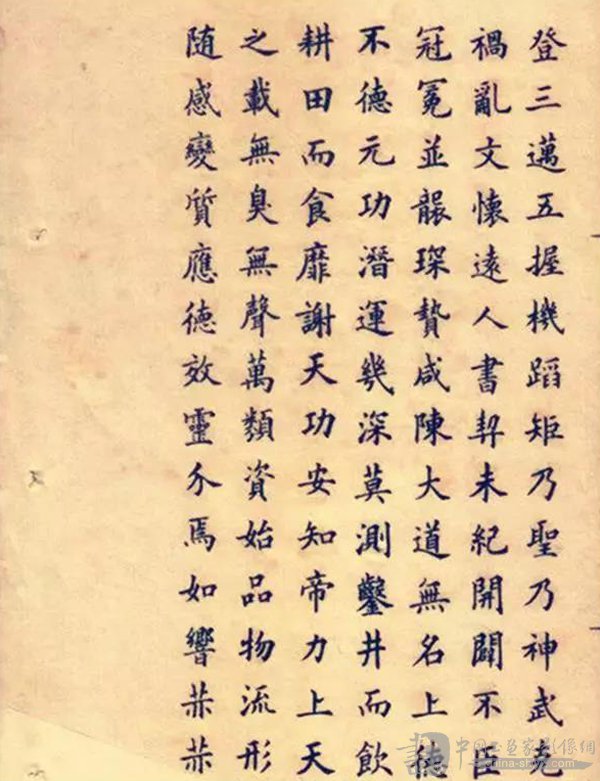 登三邁五握機蹈矩乃聖乃神武克
禍亂文懷遠人書契未紀開闢不臣
冠冕並襲琛贄咸陳大道無名上德
不德元功潛運幾深莫測鑿井而飲
耕田而食靡謝天功安知帝力上天
之載無臭無聲萬類資始品物流形
随感變質應德效靈介焉如響